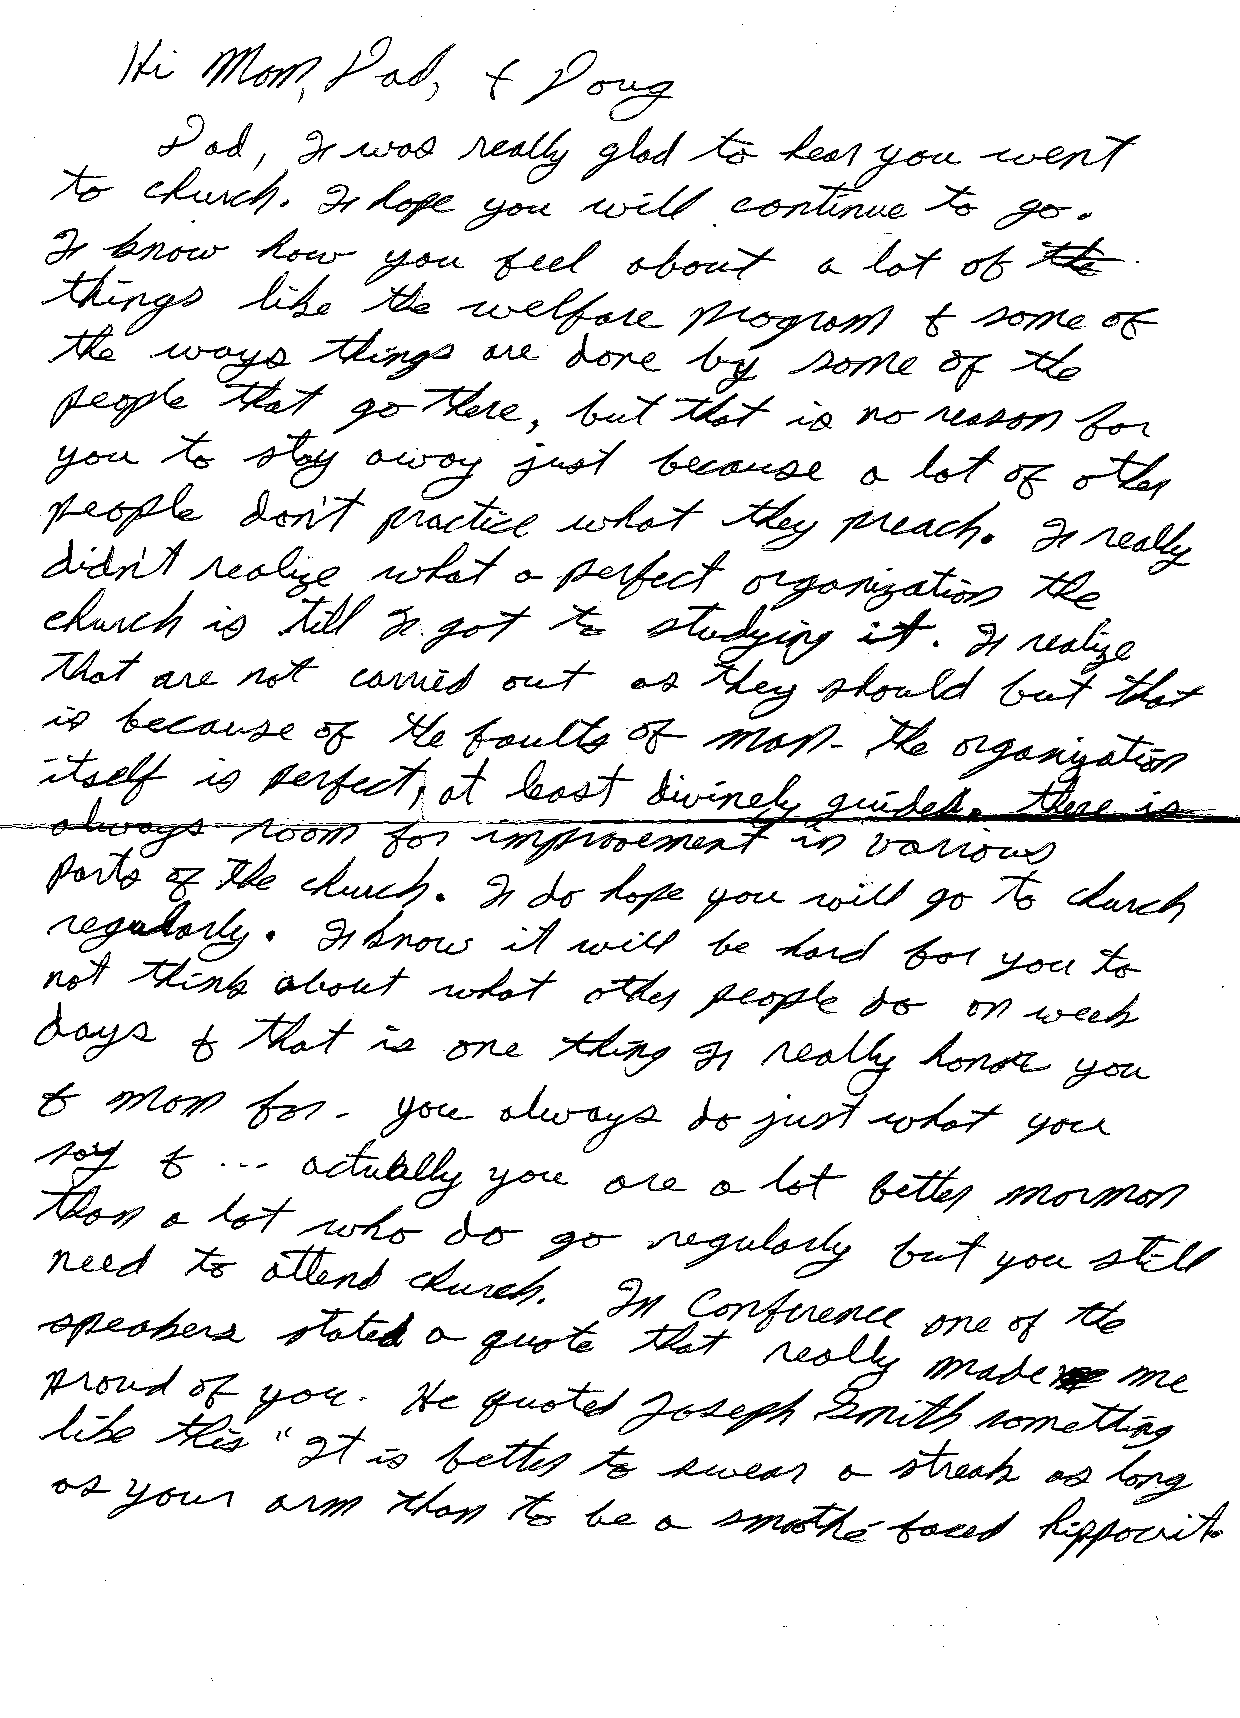 Hi Mom, Dad, & Doug
Dad, I was really glad to hear you went
to church. I hope you will continue to go.
I know how you feel about a lot of the
things like the welfare program & some of
the ways things are done by some of the
people that go there, but that is no reason for
you to stay away just because a lot of other
people don't practice what they preach. I really
didn't realize what a perfect organization the
church is till I got to studying it. I realize
that are not carried out as they should but that
is because of the faults of man - the organization
itself is perfect, at least divinely guided. there is
always room for improvement in various
parts of the church. I do hope you will go to church
regularly. I know it will be hard for you to
not think about what other people do on week
days & that is one thing I really honor you
& mom for - you always do just what you
say & ... actually you are a lot better mormon
than a lot who do go regularly but you still
need to attend church. In Conference one of the
speakers stated a quote that really made me
proud of you. He quoted Joseph Smith something
like this "It is better to swear a streak as long
as your arm than to be a smothe faced hippocrit.